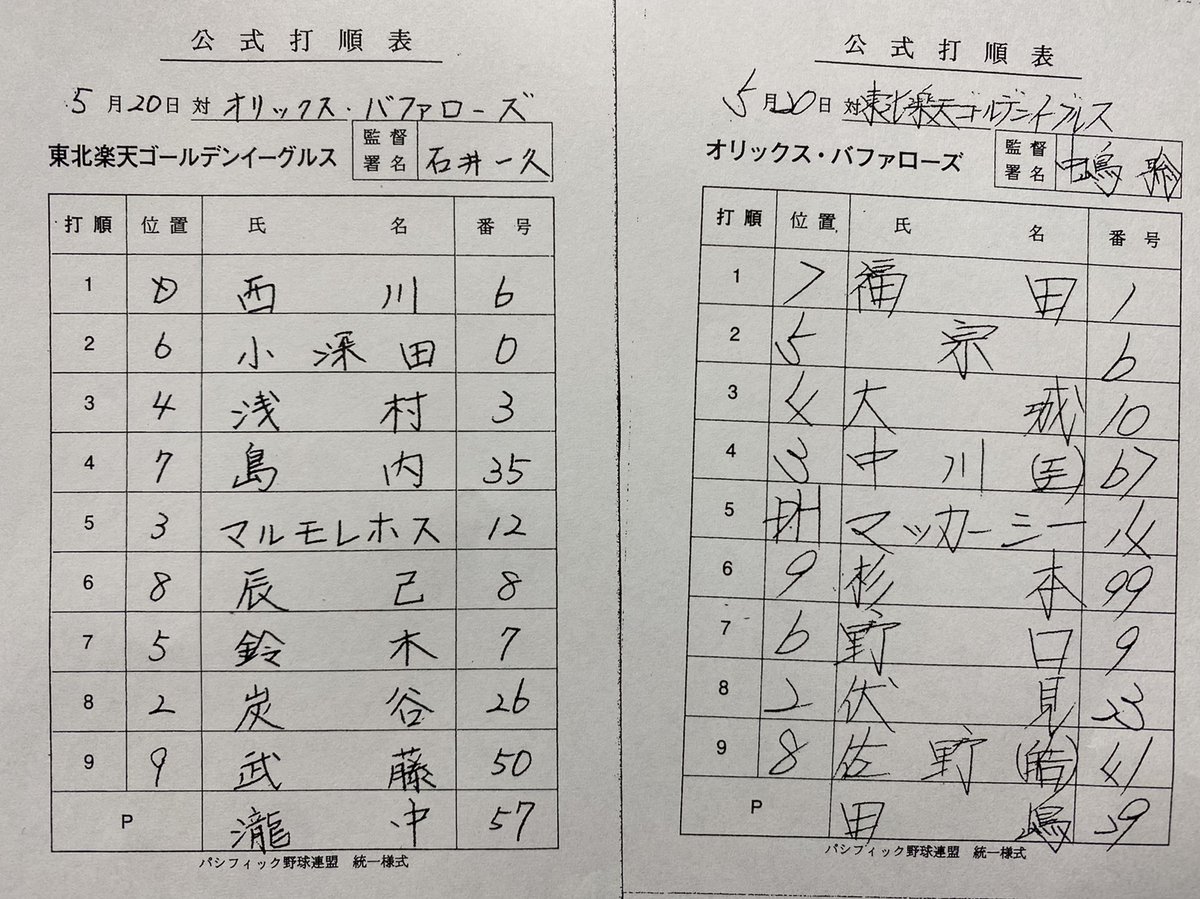 公式打順表
5月20日 対 オリックス・バファローズ
東北楽天ゴールデンイーグルス 監督署名 石井一久
打順 位置 氏名 番号
1 D 西川 6
2 6 小深田 0
3 4 浅村 3
4 7 島内 35
5 3 マルモレホス 12
6 8 辰己 8
7 5 鈴木 7
8 2 炭谷 26
9 9 武藤 50
P 瀧中 57
パシフィック野球連盟 統一様式
公式打順表
5月20日 対 東北楽天ゴールデンイーグルス
オリックス・バファローズ 監督署名 中嶋 聡
打順 位置 氏名 番号
1 7 福田 1
2 5 宗 6
3 4 大城 10
4 3 中川(圭) 67
5 DH マッカーシー 14
6 9 杉本 99
7 6 野口 9
8 2 伏見 23
9 8 佐野(皓) 41
P 田嶋 29
パシフィック野球連盟 統一様式